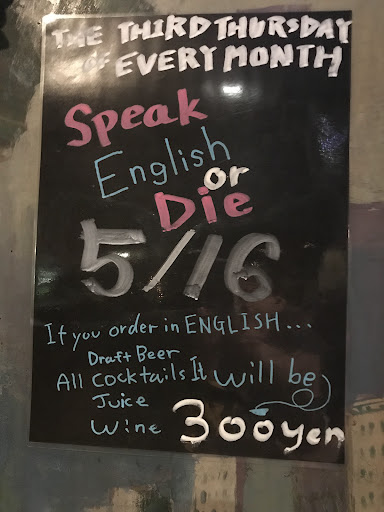 THE THIRD THURSDAY
OF EVERY MONTH
Speak
English
or
Die
5/16
If you order in ENGLISH...
Draft Beer
All Cocktails It will be
Juice
Wine 300yen